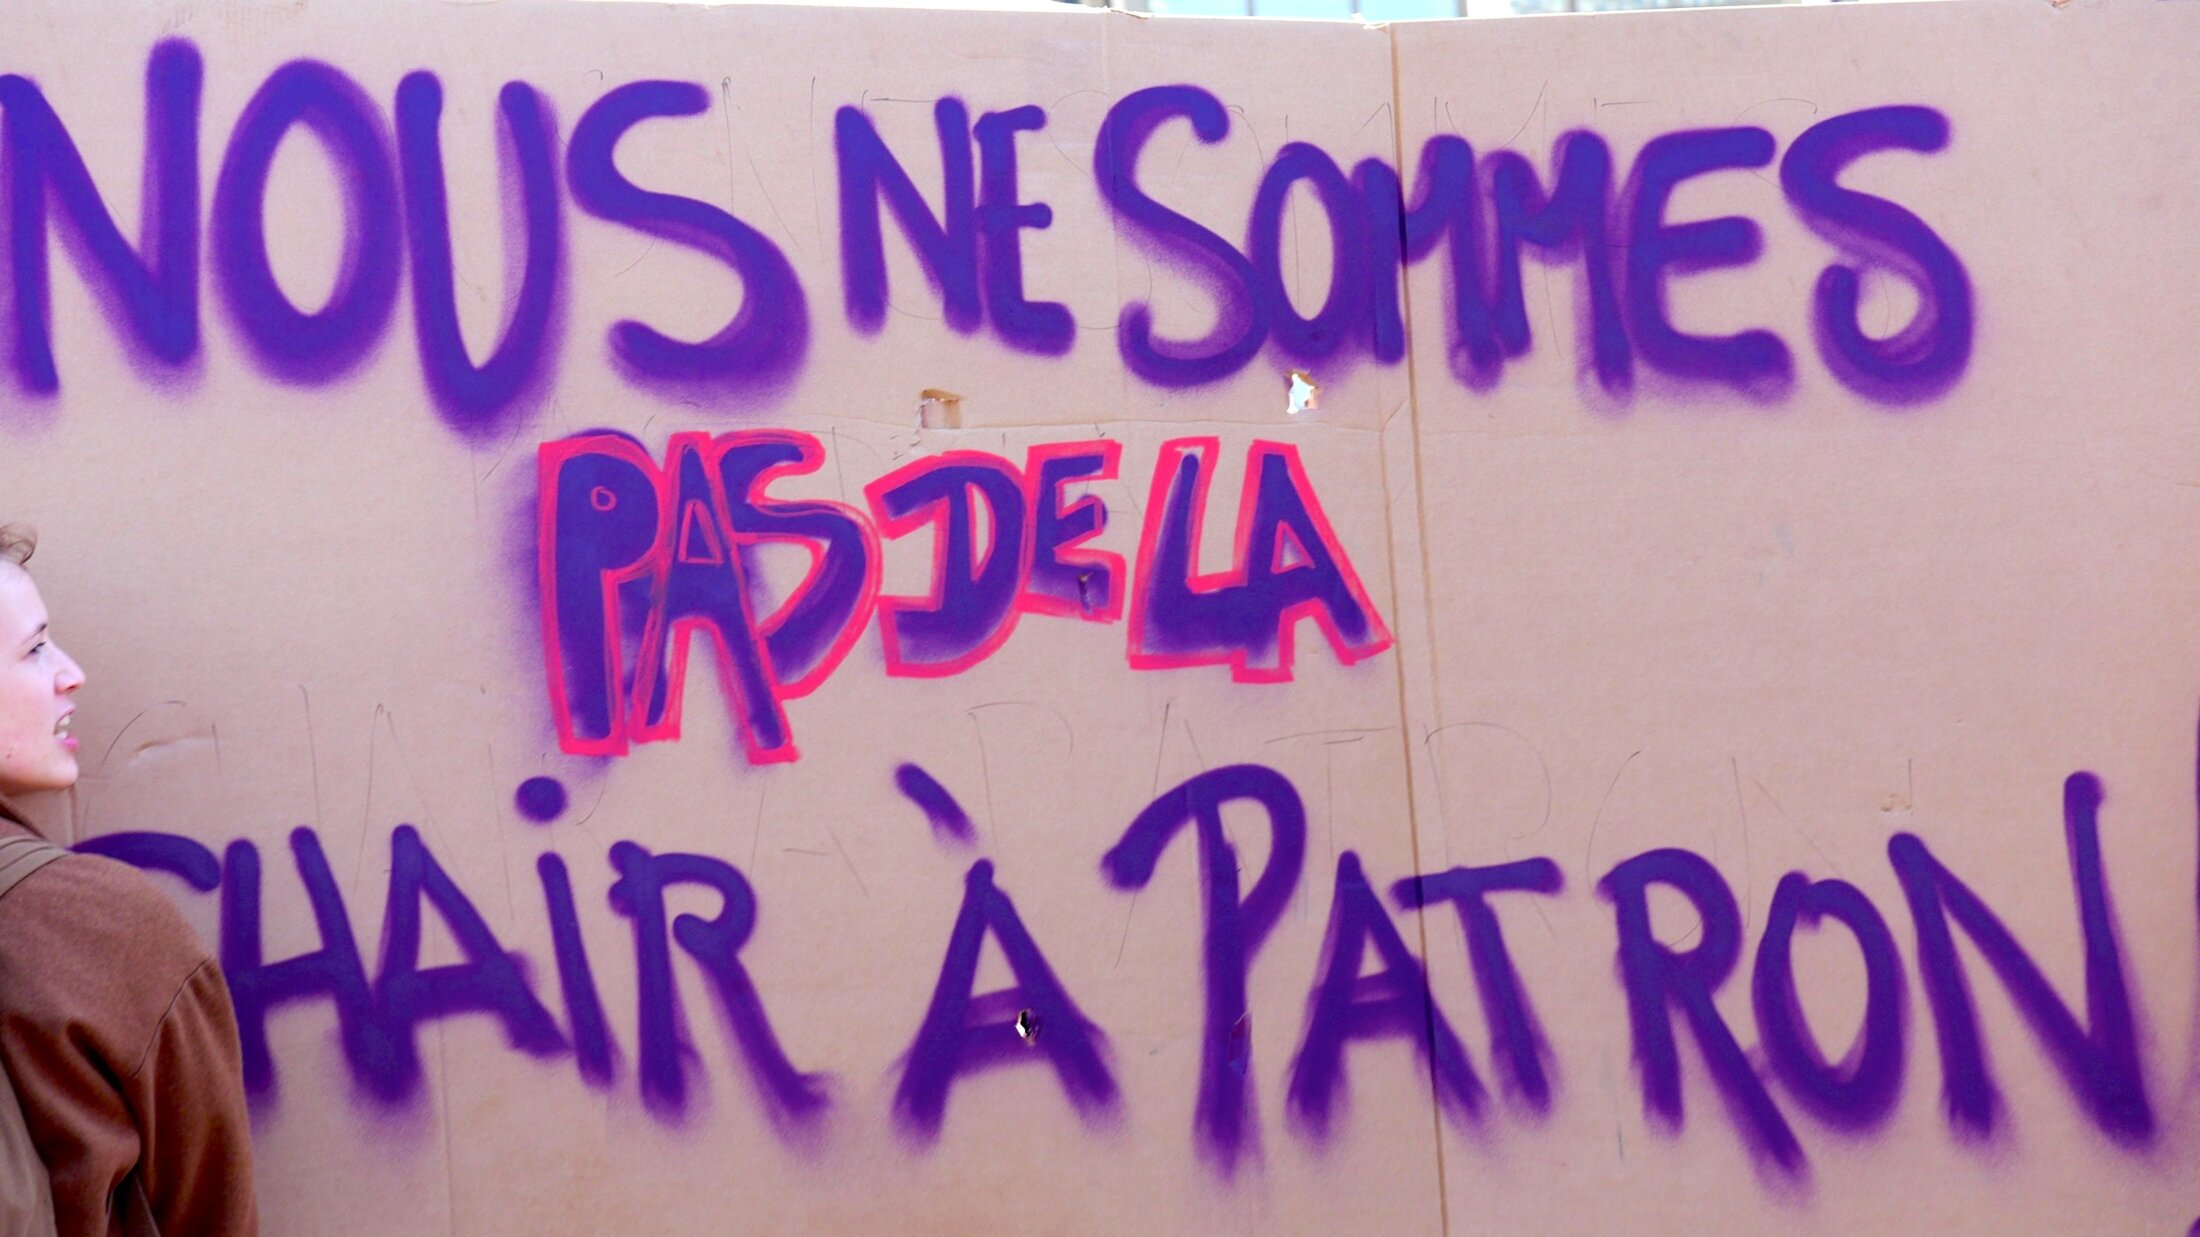 NOUS NE SOMMES
PAS DE LA
CHAiR À PATRON !